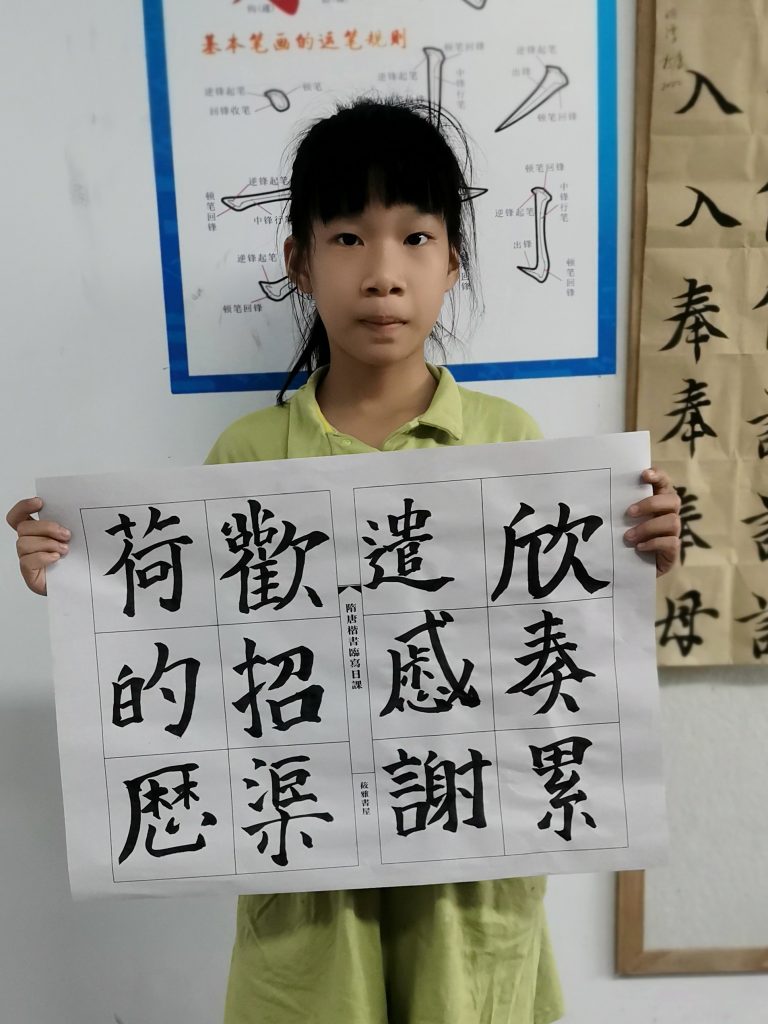 基本笔画的运笔规则
逆锋起笔
顿笔
回锋收笔
逆锋起笔
中锋行笔
逆锋起笔
出锋
顿笔回锋
逆锋起笔
顿笔回锋
中锋行笔
逆锋起笔
顿笔回锋
顿笔回锋
逆锋起笔
中锋行笔
出锋
顿笔回锋
入入奉奉奉母
欣奏累
遣慼謝
隋唐楷書臨寫日課
雅書屋
歡招渠
荷的歷